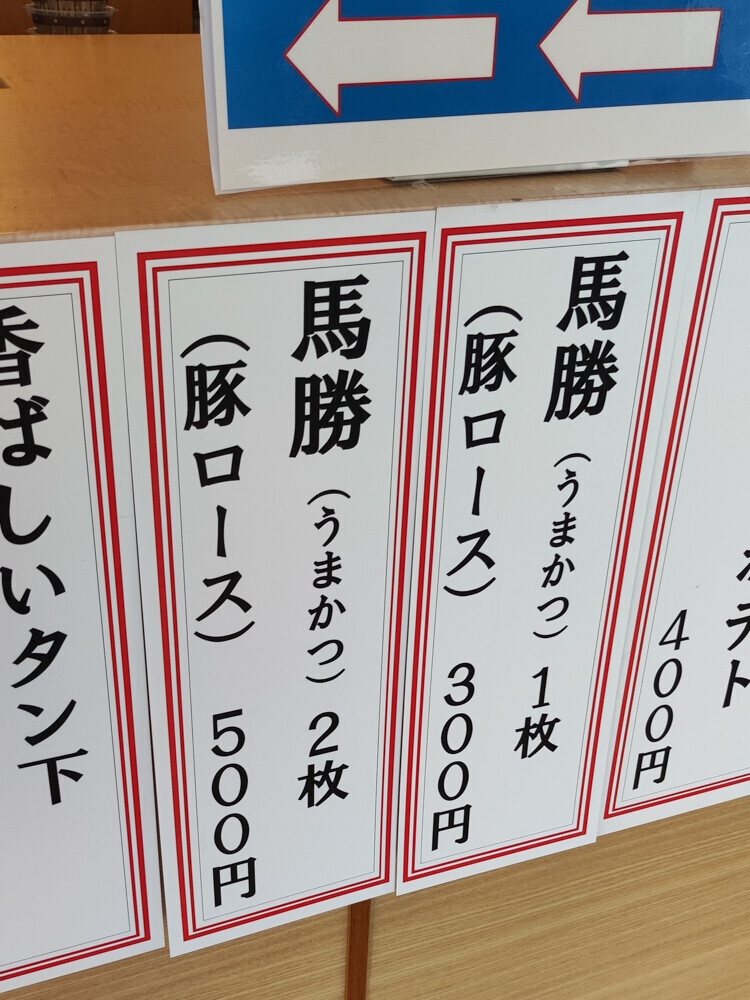 ポテト
400円
馬勝(うまかつ)1枚
(豚ロース) 300円
馬勝(うまかつ)2枚
(豚ロース) 500円
香ばしいタン下